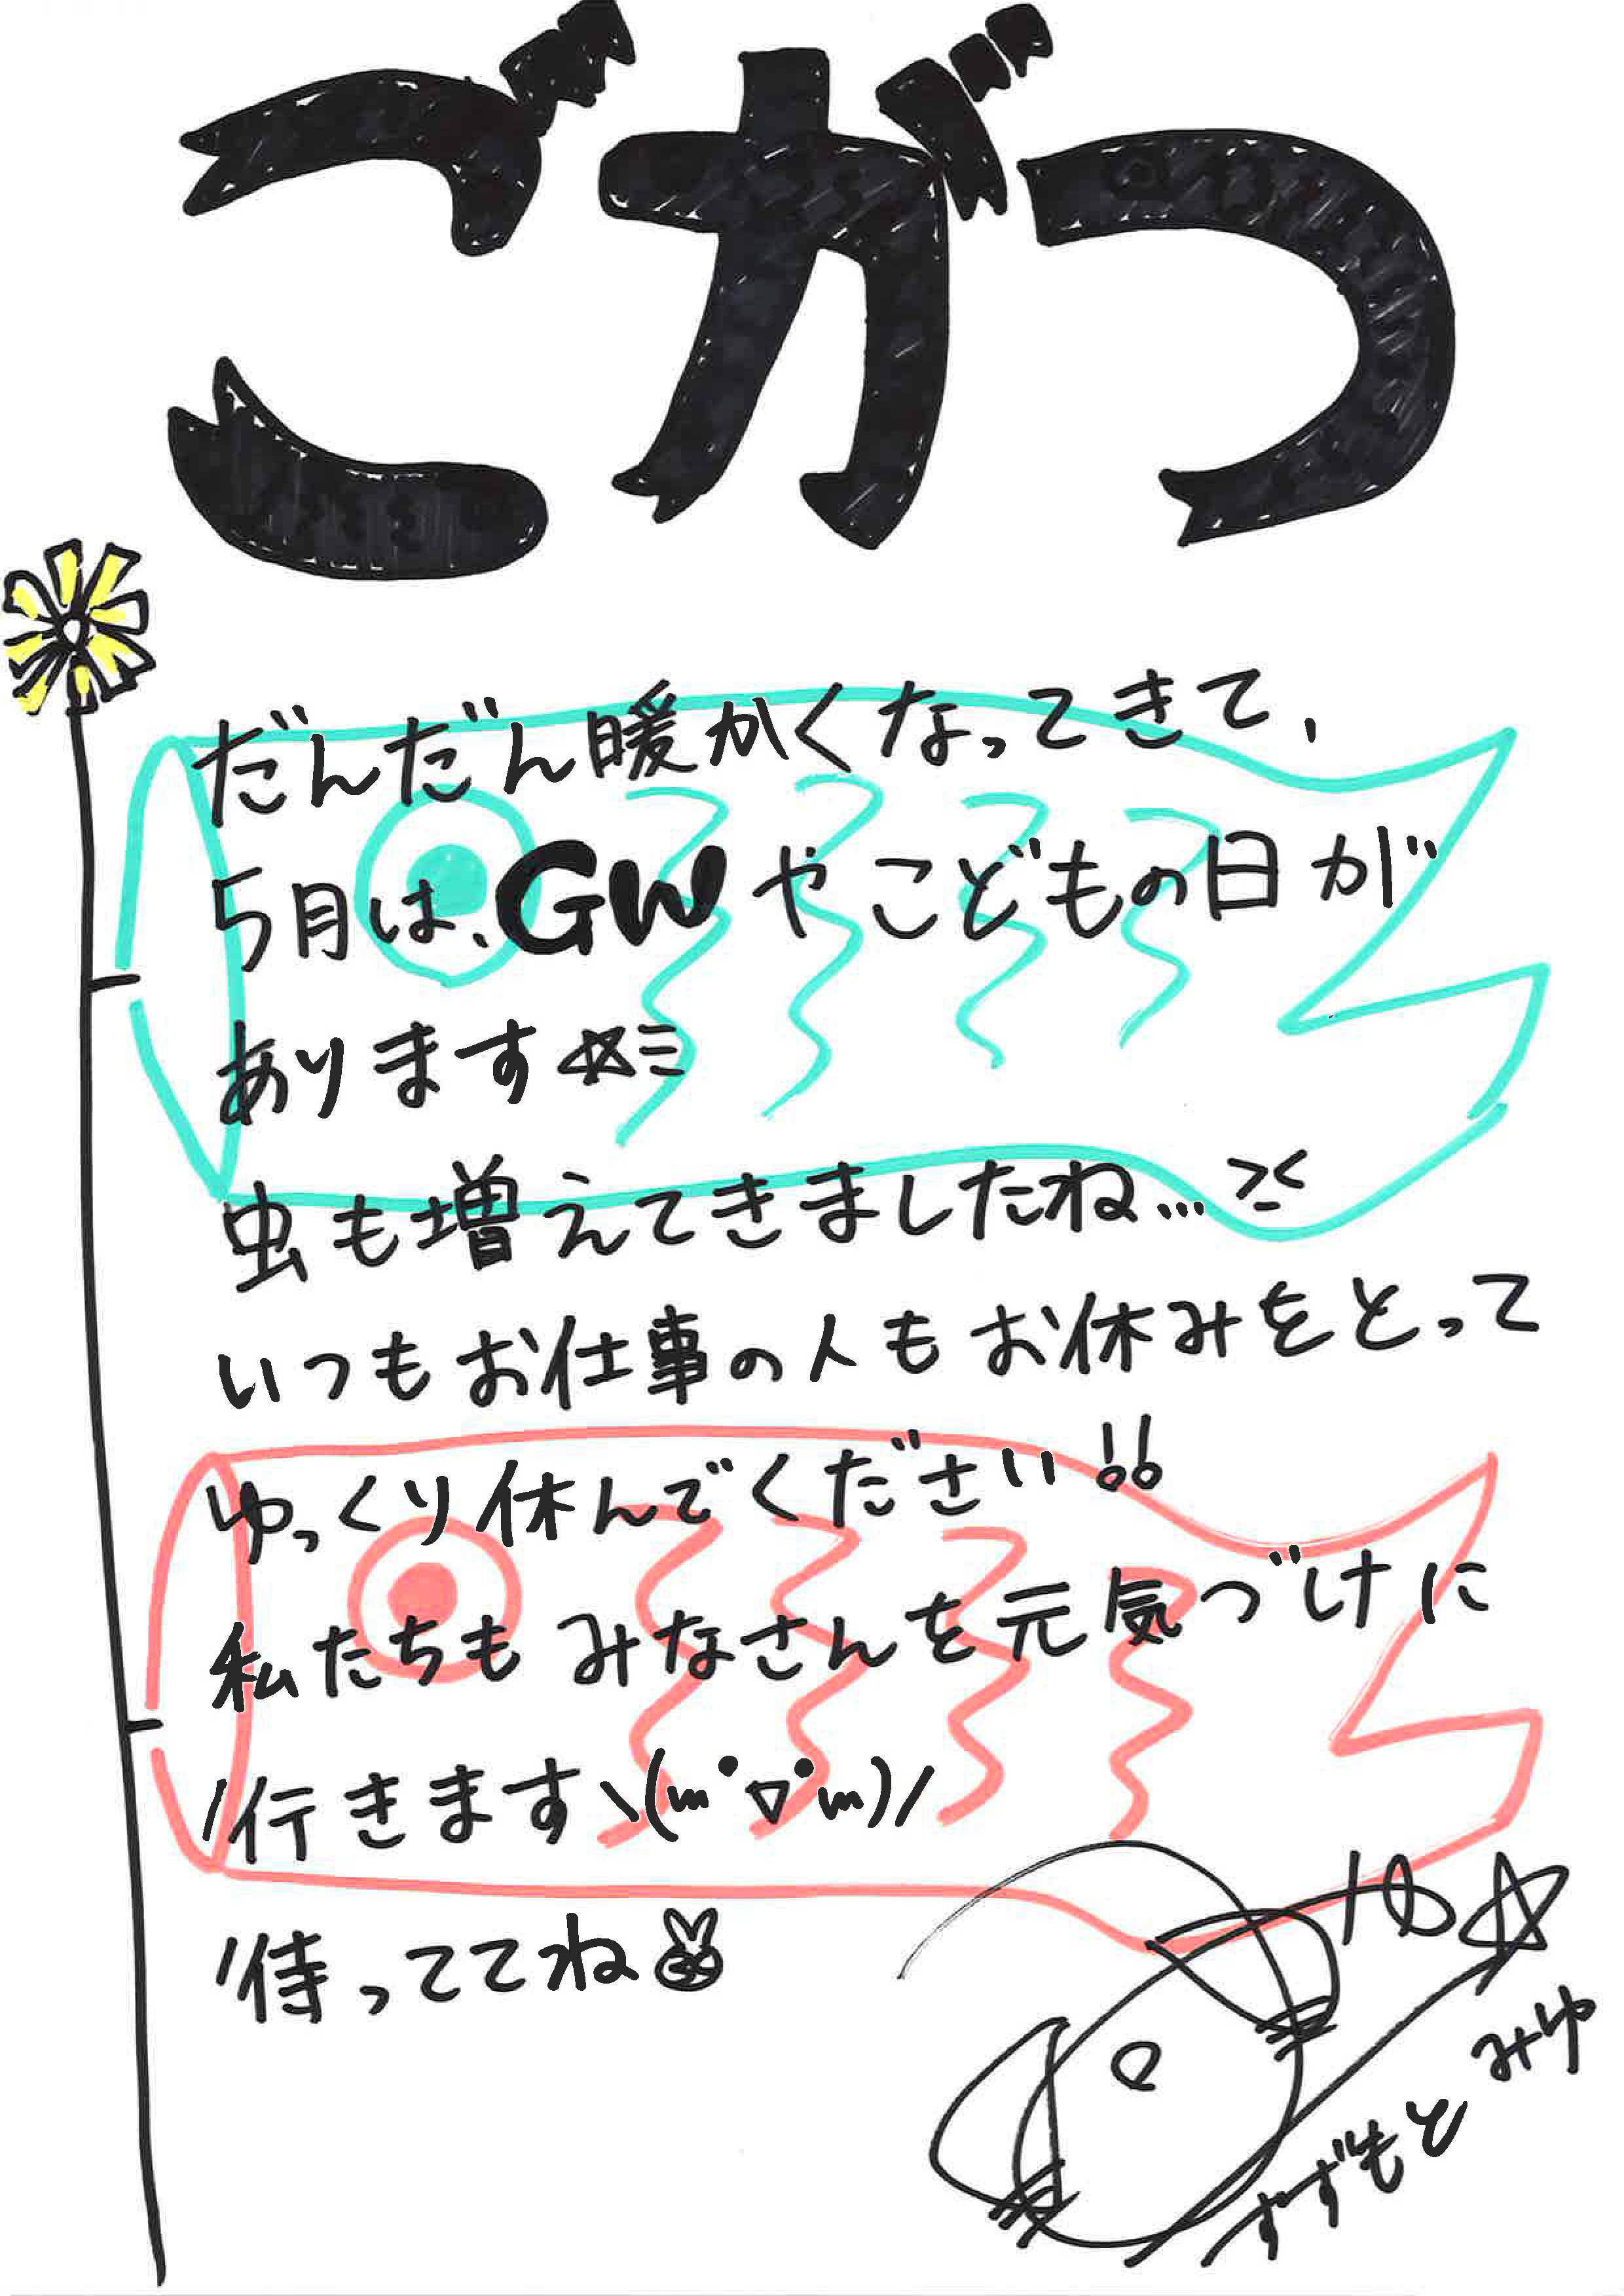 ごがつ
だんだん暖かくなってきて、
5月は、GWやこどもの日が
あります☆ミ
虫も増えてきましたね…><
いつもお仕事の人もお休みをとって
ゆっくり休んでください!!
私たちもみなさんを元気づけに
行きます\(m・▽・m)/
待っててね
みゆ☆
すずもとみゆ